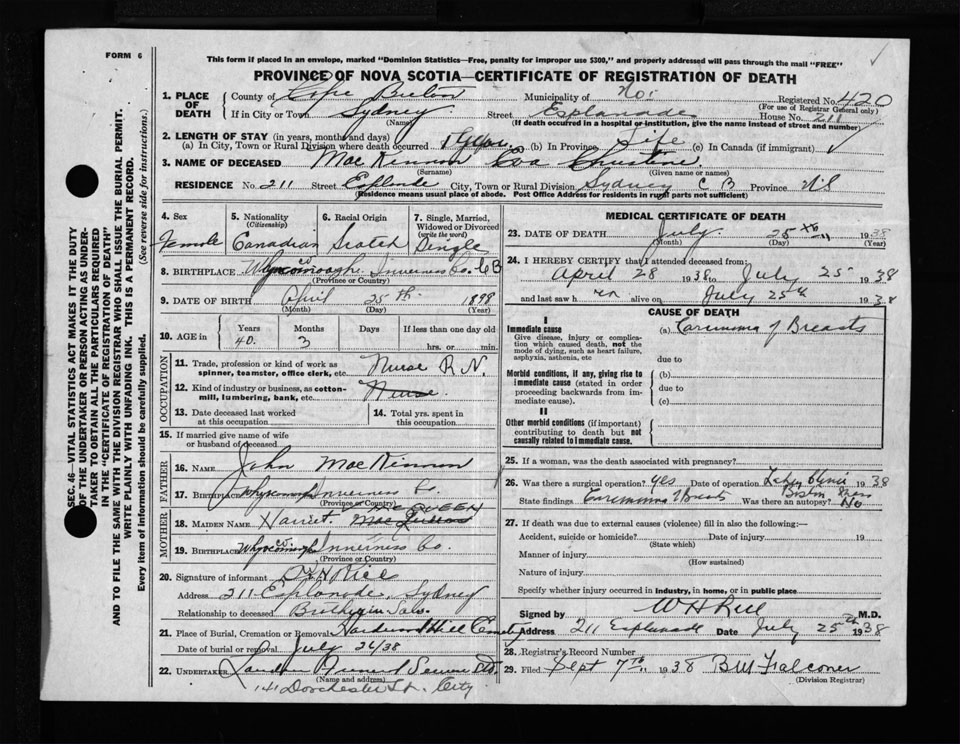 FORM 6
This form if placed in an envelope, marked "Dominion Statistics—Free, penalty for improper use $300," and properly addressed will pass through the mail "FREE"
PROVINCE OF NOVA SCOTIA—CERTIFICATE OF REGISTRATION OF DEATH
1. PLACE OF DEATH
County of Cape Breton Municipality of No: Registered No. 420
(For use of Registrar General only)
If in City or Town Sydney Street Esplanade House No. 211
(Name) (If death occurred in a hospital or institution, give the name instead of street and number)
2. LENGTH OF STAY (in years, months and days)
(a) In City, Town or Rural Division where death occurred (b) In Province Life (c) In Canada (if immigrant)
3. NAME OF DECEASED MacKinnon Eva Christine
(Surname) (Given name or names)
RESIDENCE No. 211 Street City, Town or Rural Division Sydney C B Province N S
(Residence means usual place of abode. Post Office Address for residents in rural parts not sufficient)
4. Sex Female
5. Nationality (Citizenship) Canadian
6. Racial Origin Scotch
7. Single, Married, Widowed or Divorced (write the word) Single
8. BIRTHPLACE Inverness Co. C B
(Province or Country)
9. DATE OF BIRTH April 25th 1898
(Month) (Day) (Year)
10. AGE in Years 40. Months 3 Days If less than one day old hrs. or min.
OCCUPATION
11. Trade, profession or kind of work as spinner, teamster, office clerk, etc. Nurse R.N.
12. Kind of industry or business, as cotton-mill, lumbering, bank, etc. Nurse.
13. Date deceased last worked at this occupation
14. Total yrs. spent in this occupation
15. If married give name of wife or husband of deceased
FATHER
16. NAME John MacKinnon
17. BIRTHPLACE Inverness Co.
MOTHER
18. MAIDEN NAME Harriet McQUEEN
19. BIRTHPLACE Inverness Co.
(Province or Country)
20. Signature of informant
Address 211 Esplanade, Sydney
Relationship to deceased Brother in Law.
21. Place of Burial, Cremation or Removal Hardwood Hill Cemetery
Date of burial or removal July 26/38
22. UNDERTAKER Funeral Service Ltd.
(Name and address)
141 Dorchester St. City
MEDICAL CERTIFICATE OF DEATH
23. DATE OF DEATH July 25th 1938
(Month) (Day) (Year)
24. I HEREBY CERTIFY that I attended deceased from:
April 28 1938 to July 25 1938
and last saw her alive on July 25th 1938
CAUSE OF DEATH
I
Immediate cause (a) Carcinoma of Breasts
Give disease, injury or complication which caused death, not the mode of dying, such as heart failure, asphyxia, asthenia, etc
due to
Morbid conditions, if any, giving rise to immediate cause (stated in order proceeding backwards from immediate cause).
(b)
due to
(c)
II
Other morbid conditions (if important) contributing to death but not causally related to immediate cause.
25. If a woman, was the death associated with pregnancy?
26. Was there a surgical operation? yes Date of operation Lahey Clinic 1938
Boston Mass
State findings Carcinoma of Breasts Was there an autopsy? No
27. If death was due to external causes (violence) fill in also the following:—
Accident, suicide or homicide? Date of injury 19
(State which)
Manner of injury
(How sustained)
Nature of injury
Specify whether injury occurred in industry, in home, or in public place
Signed by W H Rice M.D.
Address 211 Esplanade Date July 25th 1938
28. Registrar's Record Number
29. Filed Sept 7th 1938 B M Falconer
(Division Registrar)
SEC. 46—VITAL STATISTICS ACT MAKES IT THE DUTY OF THE UNDERTAKER OR PERSON ACTING AS UNDERTAKER TO OBTAIN ALL THE PARTICULARS REQUIRED IN THE "CERTIFICATE OF REGISTRATION OF DEATH"
AND TO FILE THE SAME WITH THE DIVISION REGISTRAR WHO SHALL ISSUE THE BURIAL PERMIT.
WRITE PLAINLY WITH UNFADING INK. THIS IS A PERMANENT RECORD.
Every item of information should be carefully supplied. (See reverse side for instructions.)